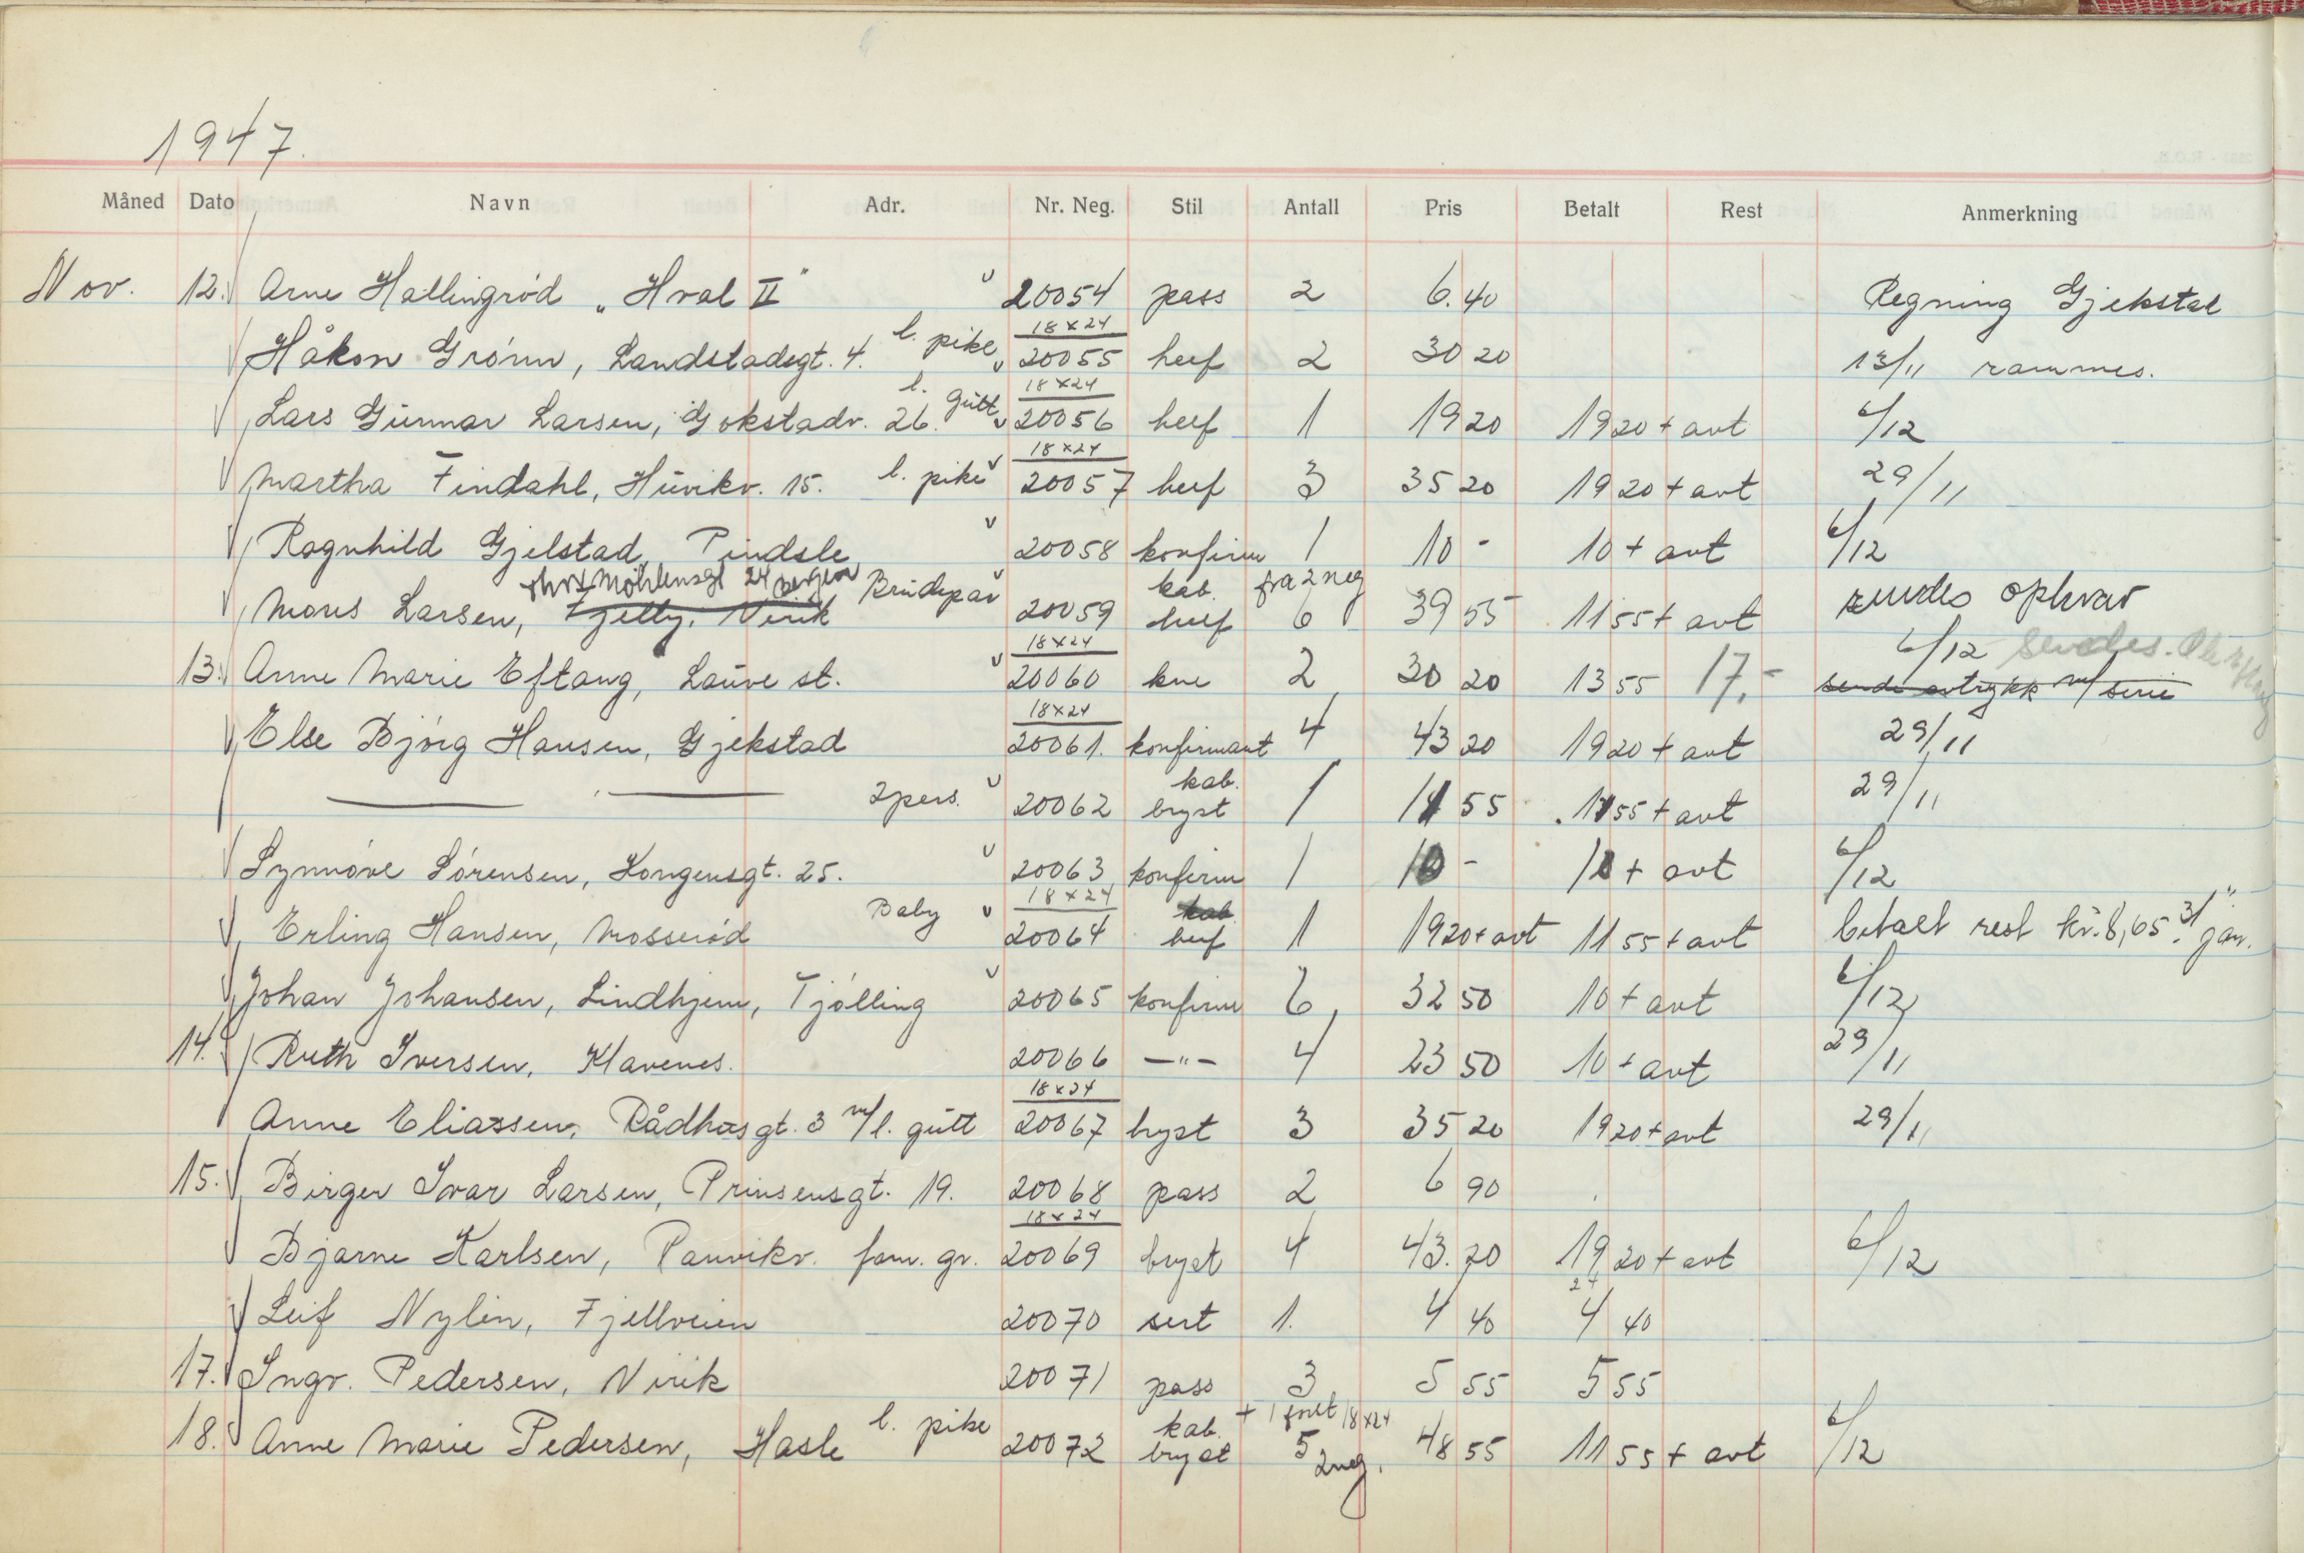 1947.
Måned Dato Navn Adr. Nr. Neg. Stil Antall Pris Betalt Rest Anmerkning
Nov. 12. Arne Hallingrød „Hval II" 20054 pass 2 6.40 Regning Gjekstad
18x24
Håkon Grønn, Landstadsgt. 4. l. pike 20055 heef 2 30 20 13/11 rammes.
18x24
Lars Gunnar Larsen, Gokstadv. 26. l. gutt 20056 heef 1 19 20 19 20 + avt 6/12
18x24
Martha Findahl, Huvikv. 15. l. pike 20057 heef 3 35 20 19 20 + avt 29/11
Ragnhild Gjelstad, Pindsle 20058 konfirm 1 10 - 10 + avt 6/12
Møhlensgt 24 Bergen kab. fra 2 neg
Mons Larsen, Fjelly, Virik Brudepar 20059 heef 6 39 55 11 55 + avt sendes opkrav
18x24 6/12 sendes.
13. Anne Marie Eftang, Lauve st. 20060 kne 2 30 20 13 55 17,- sende avtrykk m/ serie
18x24
Else Bjørg Hansen, Gjekstad 20061. konfirmant 4 43 20 19 20 + avt 29/11
kab.
— — 2 pers. 20062 bryst 1 11 55 11 55 + avt 29/11
Synnøve Sørensen, Kongensgt. 25. 20063 konfirm 1 10 - 10 + avt 6/12
18x24 kab.
Erling Hansen, Mosserød Baby 20064 heef 1 19 20 + avt 11 55 + avt betalt rest kr. 8,65. 31/ jan.
Johan Johansen, Lindhjem, Tjølling 20065 konfirm 6 32 50 10 + avt 6/12
14. Ruth Iversen, Klavenes. 20066 —"— 4 23 50 10 + avt 29/11
18x24
Anne Eliassen, Rådhusgt. 3 m/l. gutt 20067 bryst 3 35 20 19 20 + avt 29/11
15. Birger Ivar Larsen, Prinsensgt. 19. 20068 pass 2 6 90
18x24
Bjarne Karlsen, Ranvikv. fam. gr. 20069 bryst 4 43. 20 19 20 + avt 6/12
Leif Nylin, Fjellveien 20070 sert 1. 4 40 4 40
17. Ingv. Pedersen, Virik 20071 pass 3 5 55 5 55
kab. + 1 18x24
18. Anne Marie Pedersen, Hasle l. pike 20072 bryst 5 48 55 11 55 + avt 6/12
2 neg.